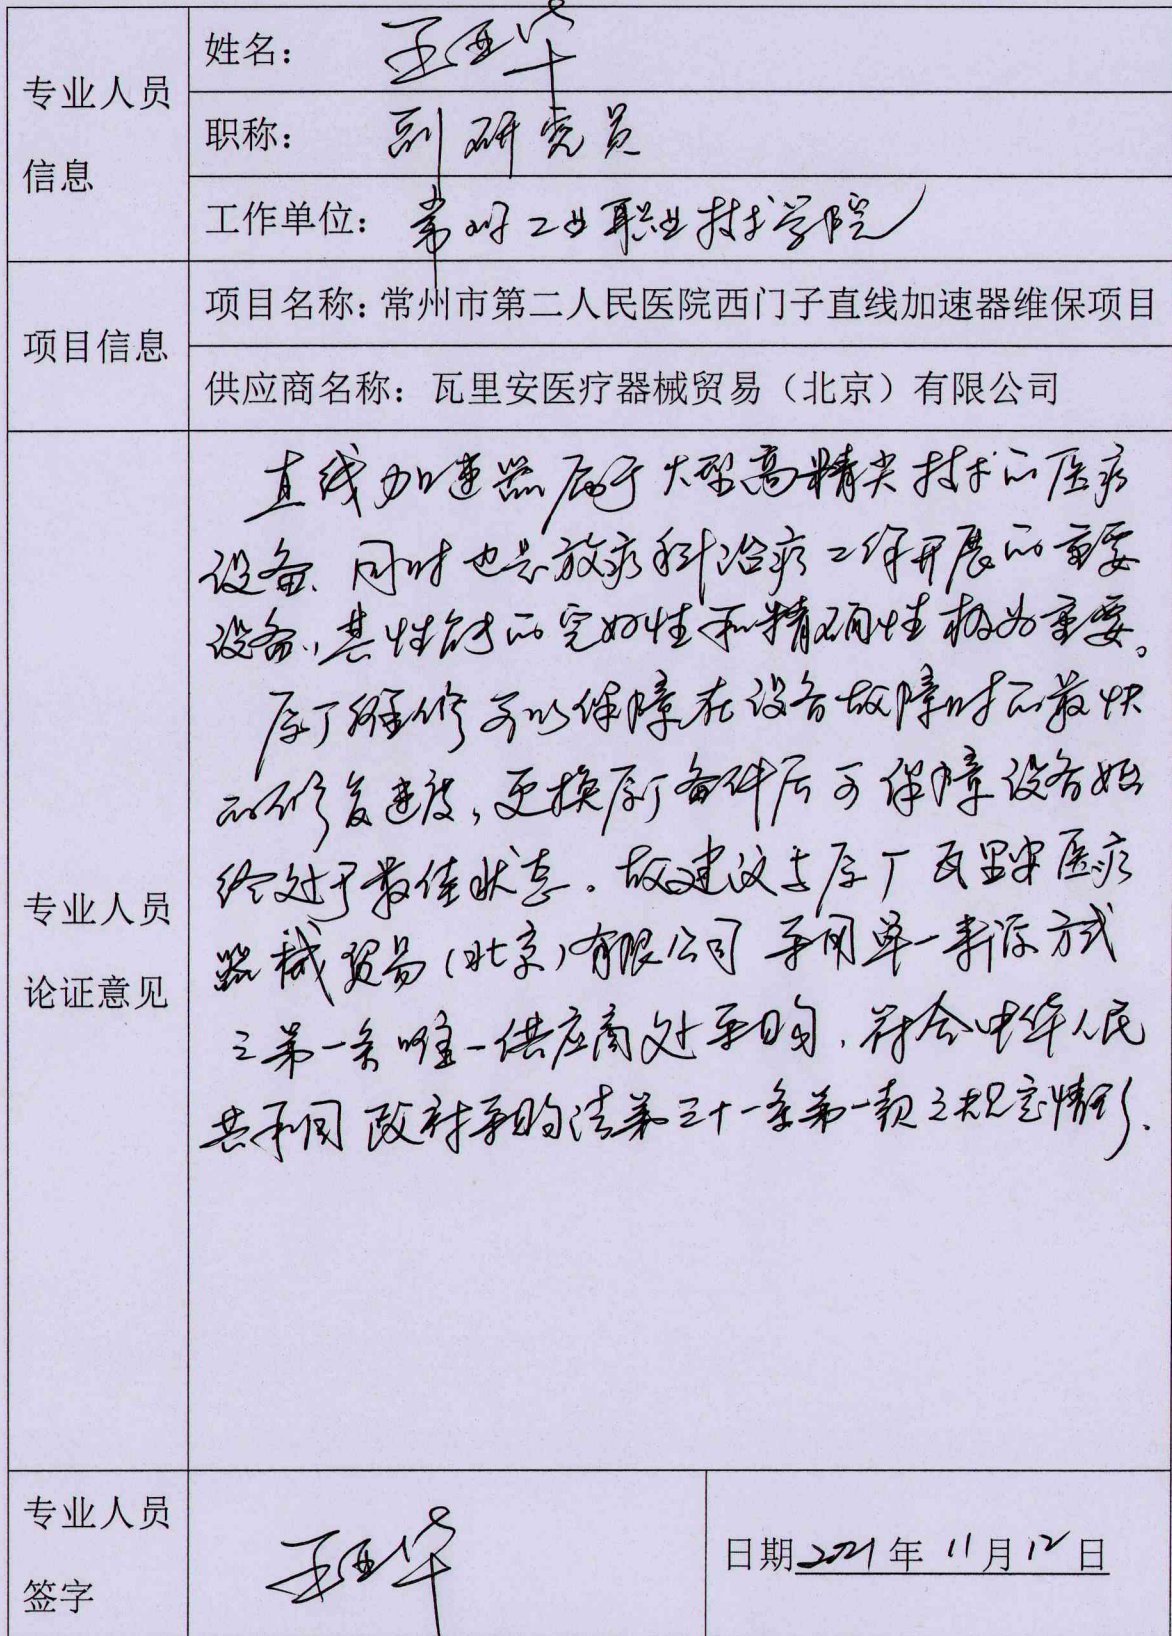 专业人员
信息
姓名：王亚华
职称：副研究员
工作单位：常州工业职业技术学院
项目信息
项目名称：常州市第二人民医院西门子直线加速器维保项目
供应商名称：瓦里安医疗器械贸易（北京）有限公司
专业人员
论证意见
直线加速器属于大型高精尖技术的医疗
设备、同时也是放疗科治疗工作开展的重要
设备，其性能的完好性和精确性极为重要。
原厂维修可以保障在设备故障时的最快
的修复速度，更换原厂备件后可保障设备始
终处于最佳状态。故建议与原厂瓦里安医疗
器械贸易（北京）有限公司采用单一来源方式
之第一条唯一供应商处采购，符合中华人民
共和国政府采购法第三十一条第一款之规定情形.
专业人员
签字
王亚华
日期2021年11月12日